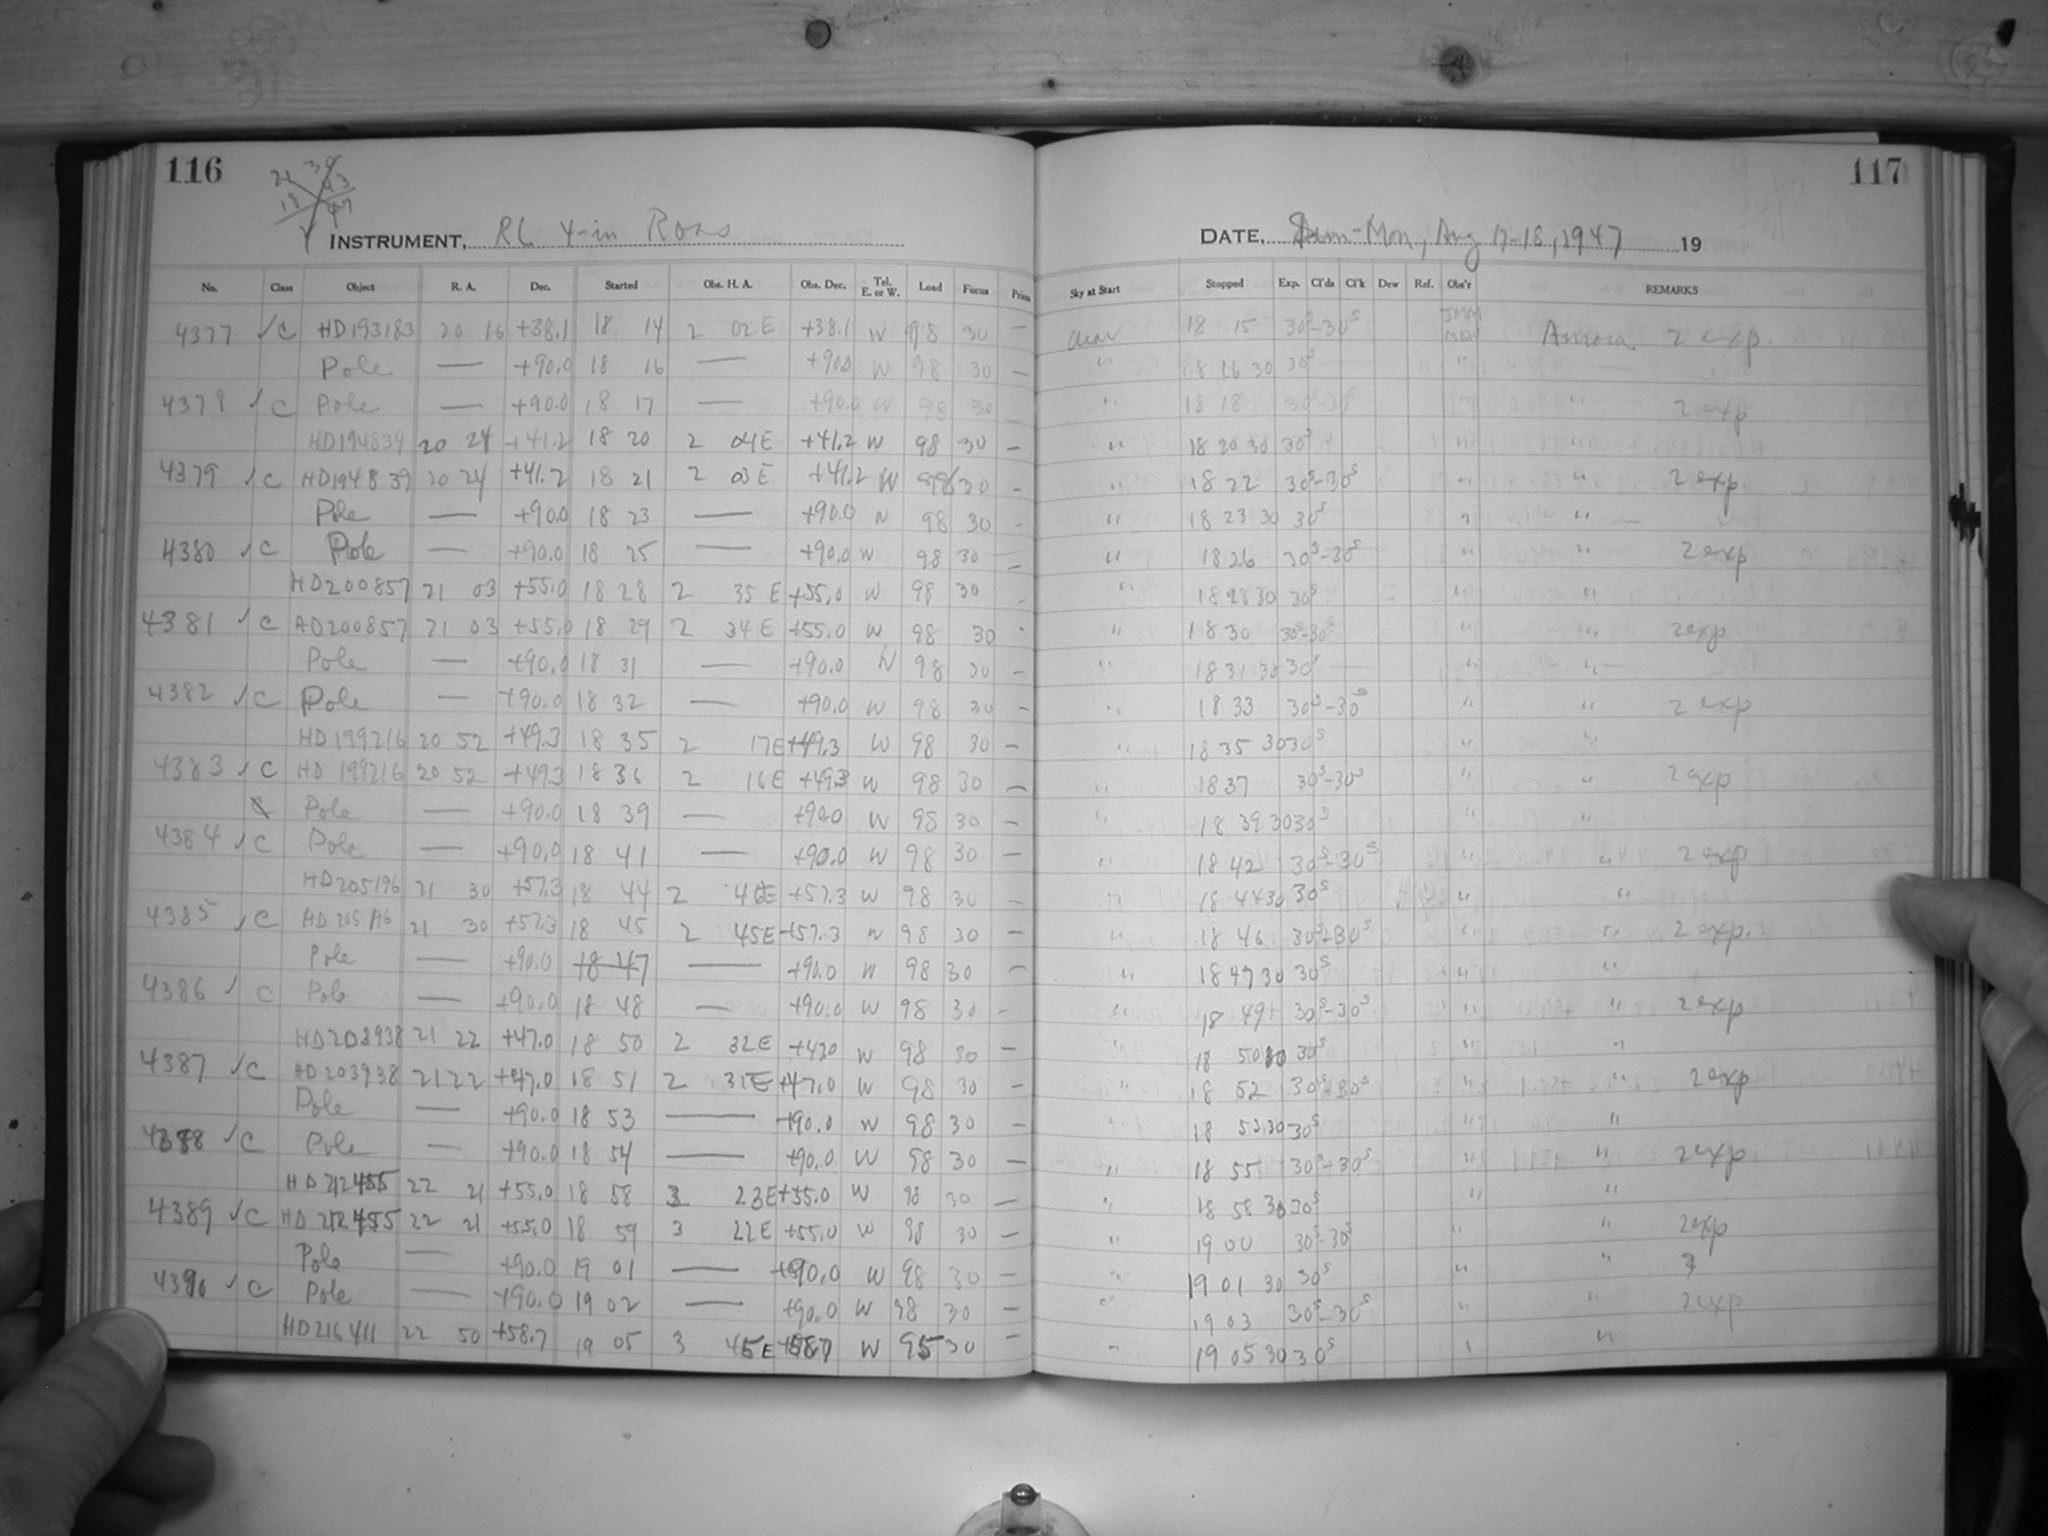 116
117
21 39
43
18 47
INSTRUMENT, RL 4-in Ross
DATE, Sun-Mon, Aug 17-18, 1947 19
No. Class Object R. A. Dec. Started Obs. H. A. Obs. Dec. Tel. E. or W. Load Focus Prism Sky at Start Stopped Exp. Cl'ds Cl'k Dew Ref. Obs'r REMARKS
4377 ✓ C HD193183 20 16 +38.1 18 14 2 02E +38.1 W 98 30 — clear 18 15 30s-30s Aurora 2 exp.
Pole — +90.0 18 16 — +90.0 W 98 30 — " 18 16 30 30s "
4378 ✓ C Pole — +90.0 18 17 — +90.0 W 98 30 " 18 18 30s-30s " " 2 exp
HD194839 20 24 +41.2 18 20 2 04E +41.2 W 98 30 — " 18 20 30 30s " "
4379 ✓ C HD194839 20 24 +41.2 18 21 2 03E +41.2 W 98 30 - " 18 22 30s-30s " " 2 exp
Pole — +90.0 18 23 — +90.0 W 98 30 - " 18 23 30 30s " "
4380 ✓ C Pole — +90.0 18 25 — +90.0 W 98 30 — " 18 26 30s-30s " " 2 exp
HD200857 21 03 +55.0 18 28 2 35E +55.0 W 98 30 - " 18 28 30 30s " "
4381 ✓ C HD200857 21 03 +55.0 18 29 2 34E +55.0 W 98 30 - " 18 30 30s-30s " " 2 exp
Pole — +90.0 18 31 — +90.0 W 98 30 — " 18 31 30 30s " "
4382 ✓ C Pole — +90.0 18 32 — +90.0 W 98 30 - " 18 33 30s-30s " " 2 exp
HD199216 20 52 +49.3 18 35 2 17E +49.3 W 98 30 — " 18 35 30 30s " "
4383 ✓ C HD 199216 20 52 +49.3 18 36 2 16E +49.3 W 98 30 — " 18 37 30s-30s " " 2 exp
Pole — +90.0 18 39 — +90.0 W 98 30 — " 18 39 30 30s " "
4384 ✓ C Pole — +90.0 18 41 — +90.0 W 98 30 — " 18 42 30s-30s " " 2 exp
HD205196 21 30 +57.3 18 44 2 46E +57.3 W 98 30 — " 18 44 30 30s " "
4385 ✓ C HD205196 21 30 +57.3 18 45 2 45E +57.3 W 98 30 — " 18 46 30s-30s " " 2 exp.
Pole — +90.0 18 47 — +90.0 W 98 30 — " 18 47 30 30s " "
4386 ✓ C Pole — +90.0 18 48 — +90.0 W 98 30 - " 18 49 30s-30s " " 2 exp
HD203938 21 22 +47.0 18 50 2 32E +47.0 W 98 30 — " 18 50 30 30s " "
4387 ✓ C HD203938 21 22 +47.0 18 51 2 31E +47.0 W 98 30 — " 18 52 30s-30s " " 2 exp
Pole — +90.0 18 53 — +90.0 W 98 30 — " 18 53 30 30s "
4388 ✓ C Pole — +90.0 18 54 — +90.0 W 98 30 — " 18 55 30s-30s " " 2 exp
HD212455 22 21 +55.0 18 58 3 23E +55.0 W 98 30 — " 18 58 30 30s " "
4389 ✓ C HD 212455 22 21 +55.0 18 59 3 22E +55.0 W 98 30 — " 19 00 30s-30s " " 2 exp
Pole — +90.0 19 01 — +90.0 W 98 30 — " 19 01 30 30s " "
4390 ✓ C Pole — +90.0 19 02 — +90.0 W 98 30 — " 19 03 30s-30s " " 2 exp
HD216411 22 50 +58.7 19 05 3 45E +58.7 W 95 30 — " 19 05 30 30s " "